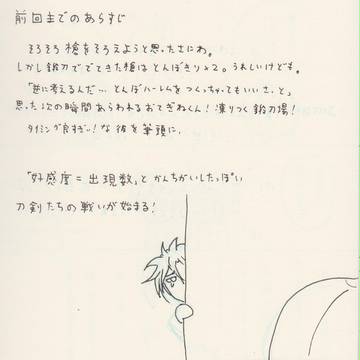 前回までのあらすじ
そろそろ槍をそろえようと思ったさにわ。
しかし鍛刀ででてきた槍はとんぼきり×2。うれしいけども。
「逆に考えるんだ… とんぼハーレムをつくっちゃってもいいさ、と」
思った次の瞬間あらわれるおてぎねくん！凍りつく鍛刀場！
タイミング良すぎぃ！な彼を筆頭に、
「好感度＝出現数」とかんちがいしたっぽい
刀剣たちの戦いが始まる！